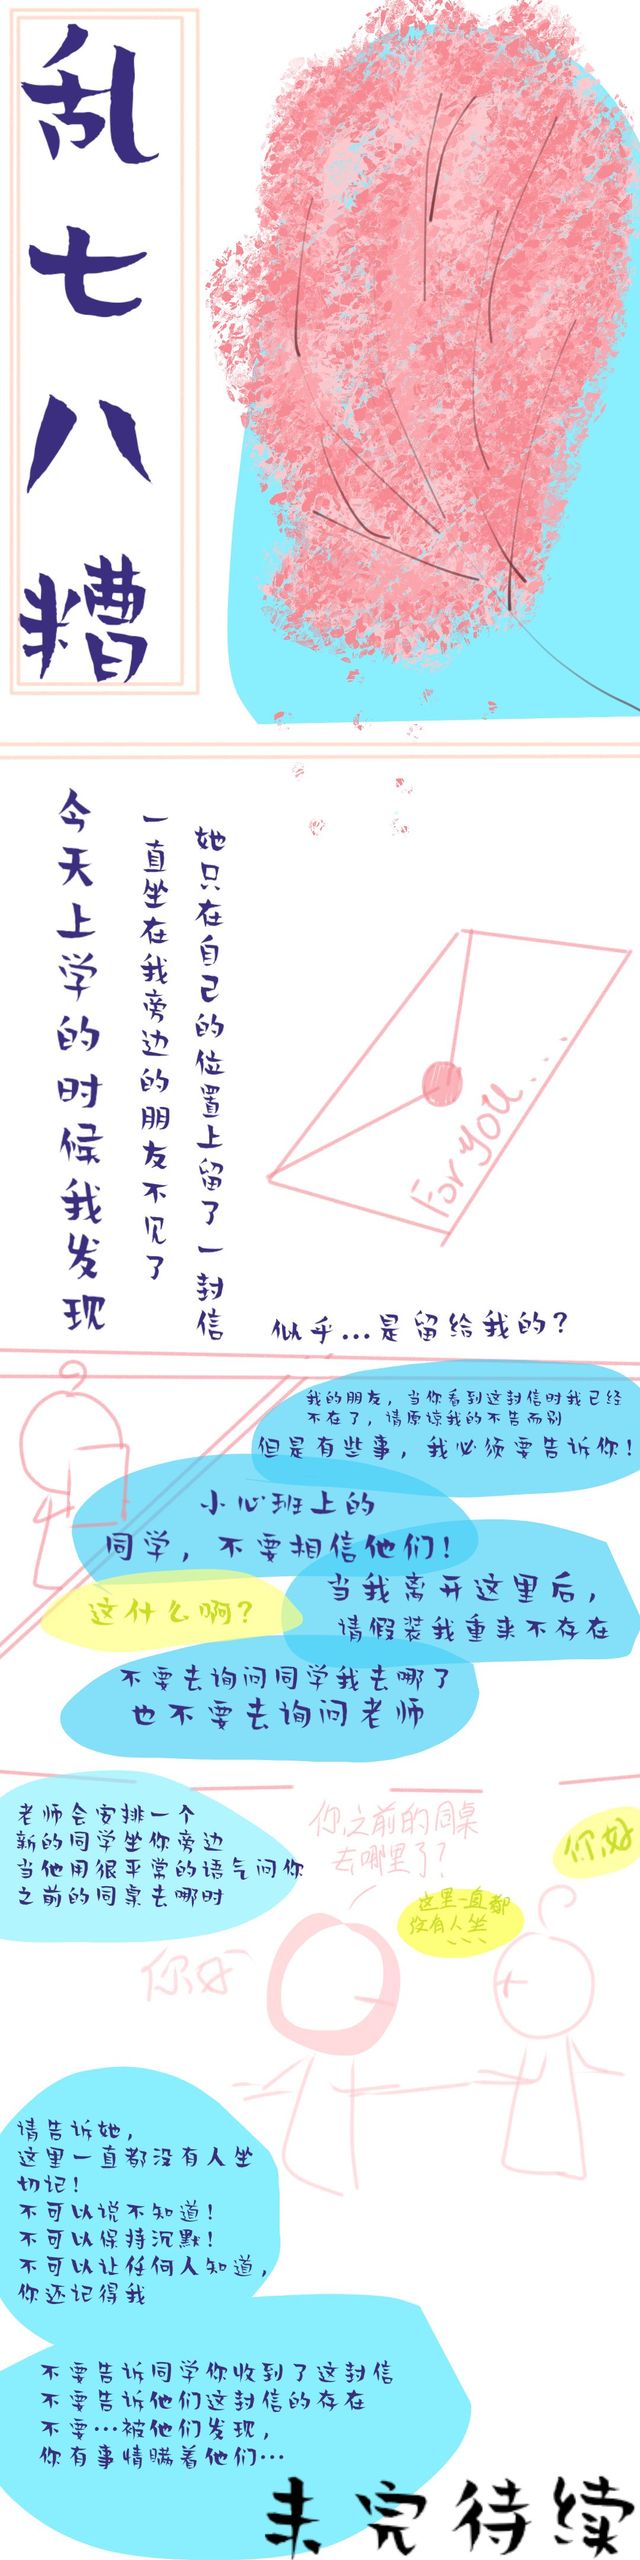 乱七八糟
今天上学的时候我发现
一直坐在我旁边的朋友不见了
她只在自己的位置上留了一封信
For you...
似乎...是留给我的？
我的朋友，当你看到这封信时我已经
不在了，请原谅我的不告而别
但是有些事，我必须要告诉你！
小心班上的
同学，不要相信他们！
这什么啊？
当我离开这里后，
请假装我重来不存在
不要去询问同学我去哪了
也不要去询问老师
老师会安排一个
新的同学坐你旁边
当他用很平常的语气问你
之前的同桌去哪时
你好
你之前的同桌
去哪里了？
这里一直都
没有人坐
、、、
你好
请告诉她，
这里一直都没有人坐
切记！
不可以说不知道！
不可以保持沉默！
不可以让任何人知道，
你还记得我
不要告诉同学你收到了这封信
不要告诉他们这封信的存在
不要…被他们发现，
你有事情瞒着他们…
未完待续